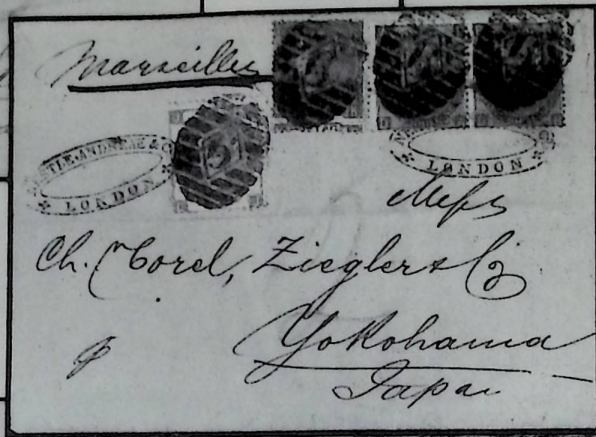 Marseilles
TLE. ANDREAE & C
LONDON
LONDON
Messrs
Ch. Morel, Ziegler & Co
Yokohama
Japan